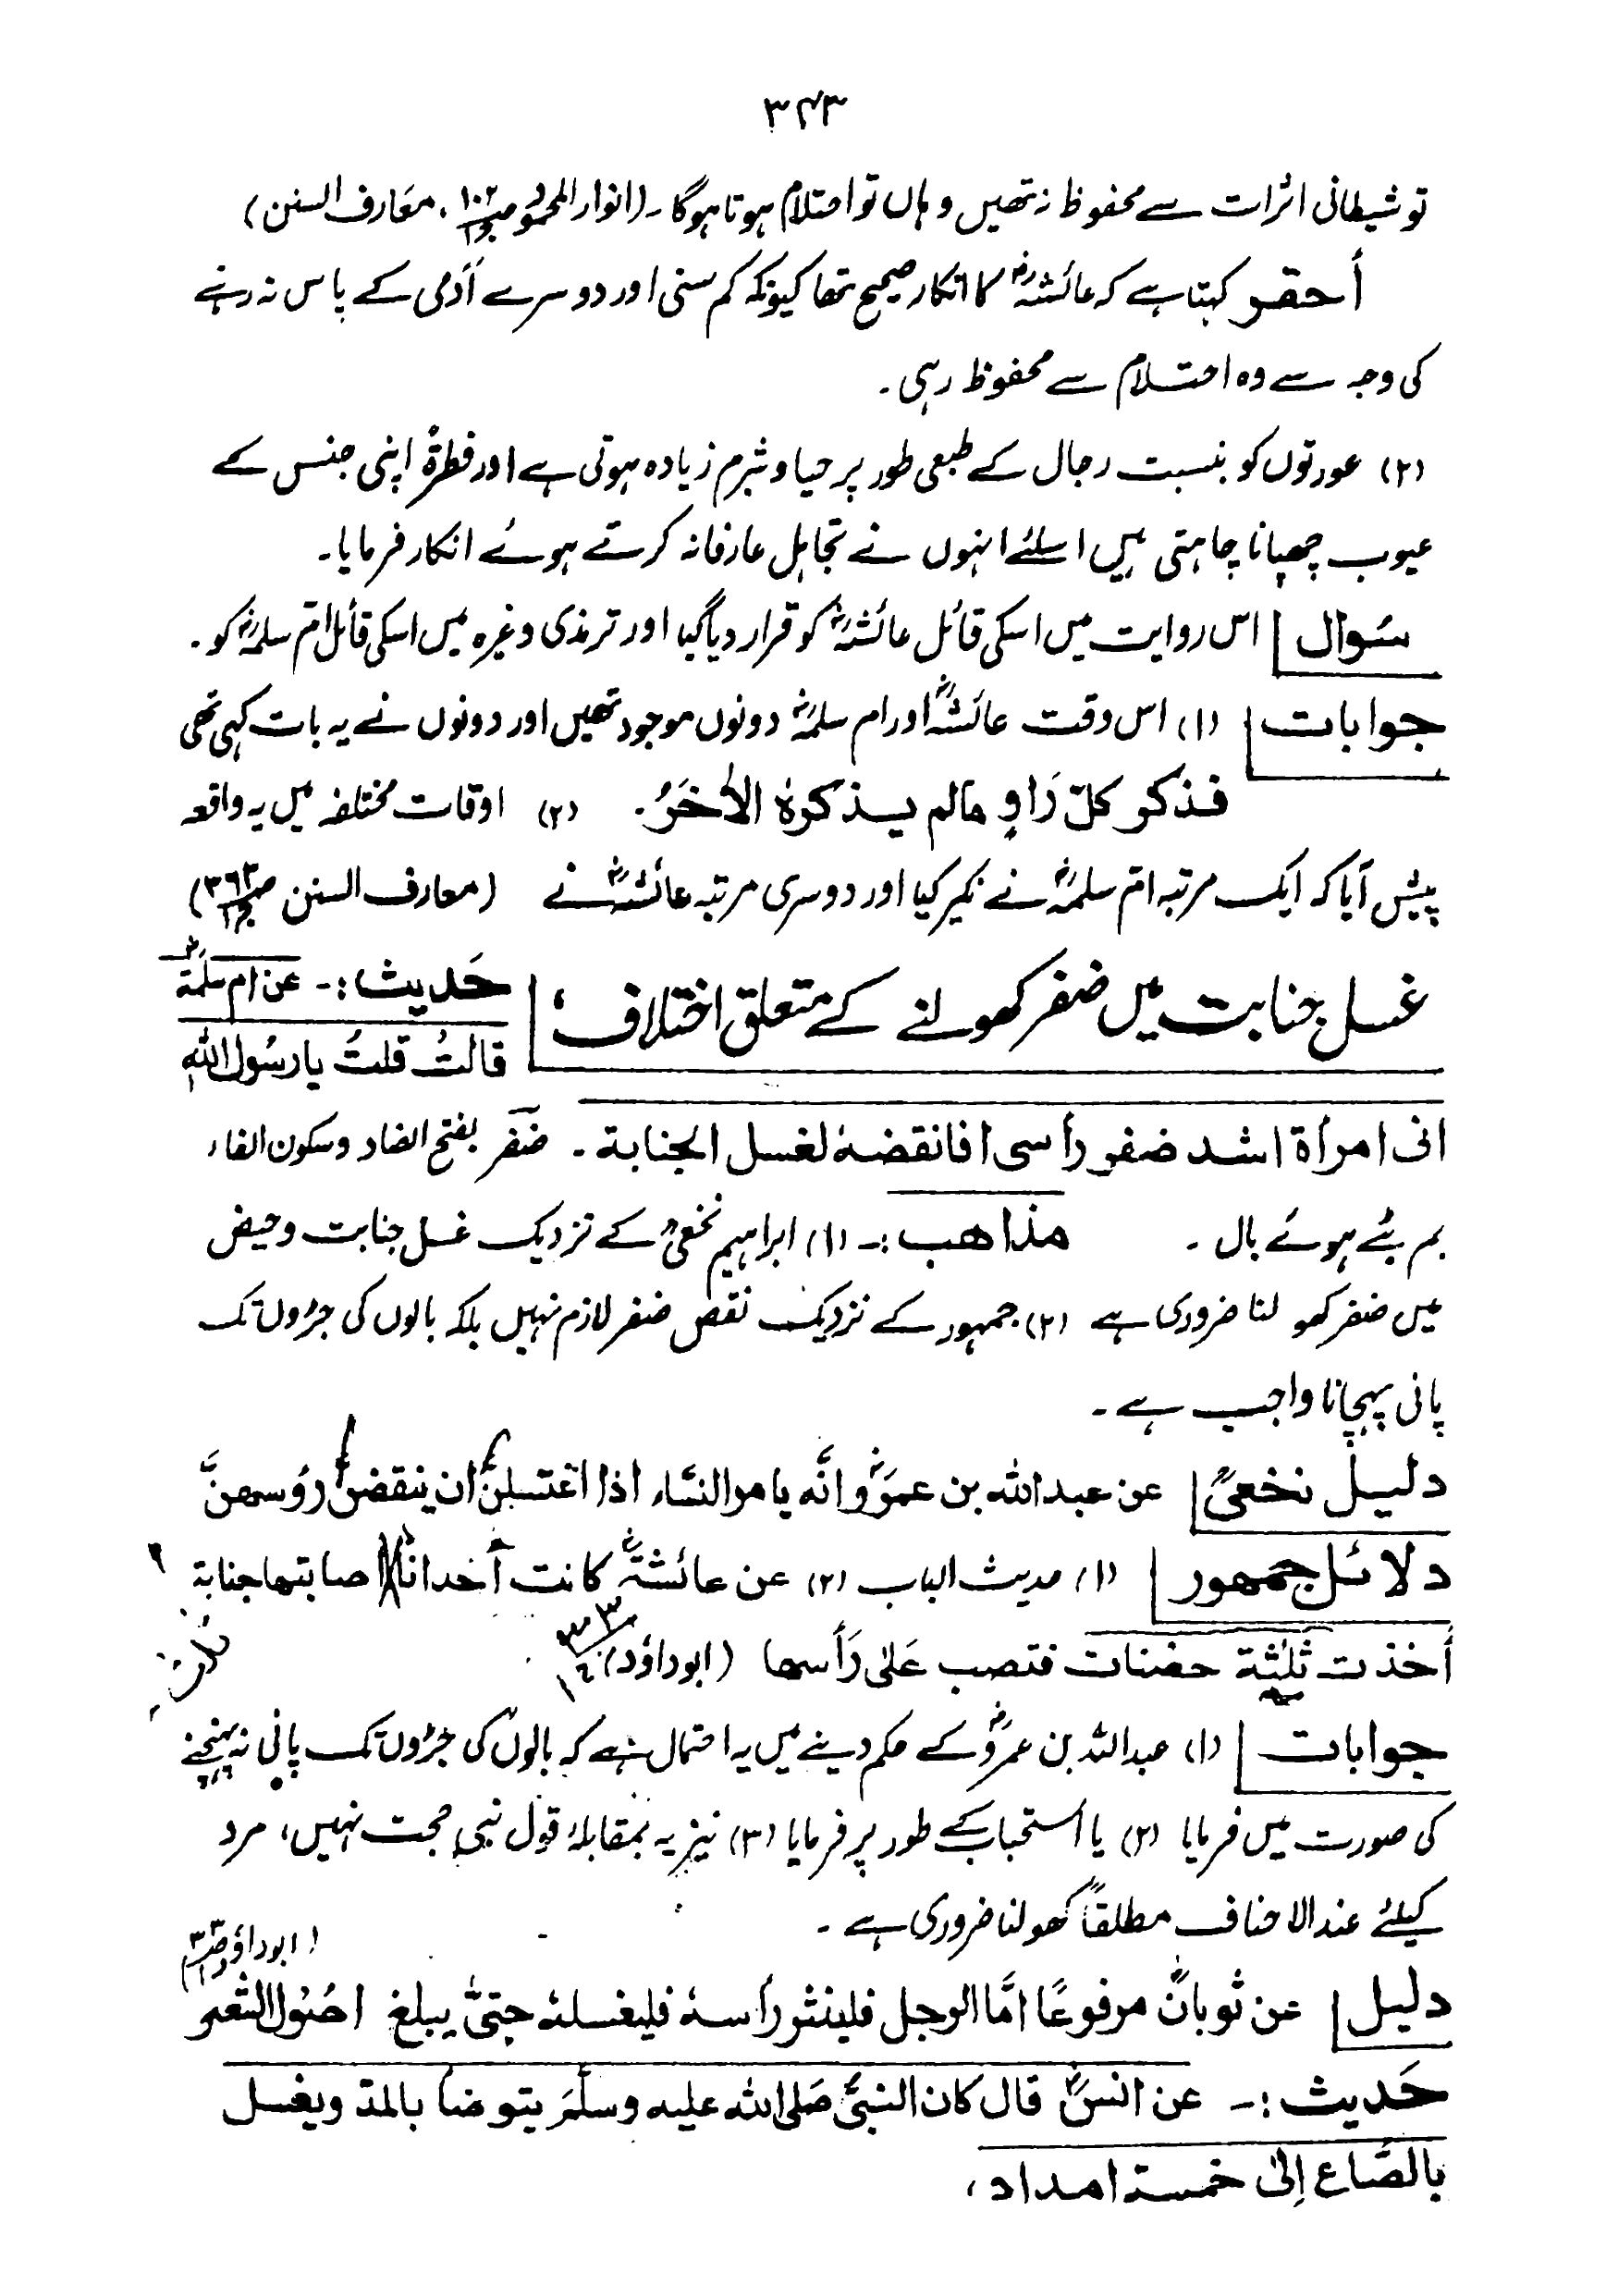 ۳۴۳
تو شیطانی اثرات سے محفوظ نہ تھیں وہاں تو احتلام ہوتا ہوگا ۔ (انوار المحمود ص۱۰۲ ج۱ ، معارف السنن)
أحقر کہتا ہے کہ عائشہؓ کا انکار صحیح تھا کیونکہ کم سنی اور دوسرے آدمی کے پاس نہ رہنے
کی وجہ سے وہ احتلام سے محفوظ رہی ۔
(۲) عورتوں کو بنسبت رجال کے طبعی طور پر حیا و شرم زیادہ ہوتی ہے اور فطرۃً اپنی جنس کے
عیوب چھپانا چاہتی ہیں اسلئے انہوں نے تجاہل عارفانہ کرتے ہوئے انکار فرمایا۔
سَوال اس روایت میں اسکی قائل عائشہؓ کو قرار دیا گیا اور ترمذی وغیرہ میں اسکی قائل امّ سلمہؓ کو ۔
جوابات (۱) اس وقت عائشہؓ اور ام سلمہؓ دونوں موجود تھیں اور دونوں نے یہ بات کہی تھی
فذکر کلّ رَاوٍ مالم یذکرہٗ الآخَرُ ۔ (۲) اوقات مختلفہ میں یہ واقعہ
پیش آیا کہ ایک مرتبہ امّ سلمہؓ نے نکیر کیا اور دوسری مرتبہ عائشہؓ نے (معارف السنن ص۳۶۳ ج۱)
غسلِ جنابت میں ضفر کھولنے کے متعلق اختلاف ؛ حَدیث :۔ عن ام سلمۃؓ
قالتُ قلتُ یا رسُول اللہ
انی امرأۃ اشد ضفر رأسی افانقضہٗ لغسل الجنابۃ ۔ ضَفر بفتح الضاد وسکون الفاء
بم بٹے ہوئے بال ۔ مذاهب :۔ (۱) ابراہیم نخعیؒ کے نزدیک غسل جنابت وحیض
میں ضفر کھو لنا ضروری ہے (۲) جمہور کے نزدیک نقض ضفر لازم نہیں بلکہ بالوں کی جڑوں تک
پانی پہچانا واجب ہے ۔
دلیل نخعیؒ عن عبد اللہ بن عمرَوؓ انَّہ یامر النسَّاء اذا اغتسلنَ ان ینقضنَ رؤسهنَّ
دلائل جمهور (۱) حدیث الباب (۲) عن عائشۃؓ کانت أحدانَا اصابتها جنابۃ
أخذت ثلٰثة حفنات فتصب عَلیٰ رَأسها (ابوداؤد) ص۳۳ ج۱
جوابات (۱) عبداللہ بن عمروؓ کے حکم دینے میں یہ احتمال ہے کہ بالوں کی جڑوں تک پانی نہ پہنچنے
کی صورت میں فرمایا (۲) یا استحباب کے طور پر فرمایا (۳) نیز یہ بمقابلۂ قول نبی حجت نہیں، مرد
کیلئے عند الاحناف مطلقاً کھولنا ضروری ہے ۔
(ابوداؤد ص۳۴ ج۱)
دلیل عن ثوبانؓ مرفوعًا امَّا الرجل فلینثر رأسہٗ فلیغسلہٗ حتیّٰ یبلغ اصُول الشعر
حَدیث :۔ عن انسؓ قال کان النبیَّ صَلی اللہ علیه وسلَّمَ یتوضأ بالمدّ ویغسل
بالصَّاع إلیٰ خمسۃ امداد ،